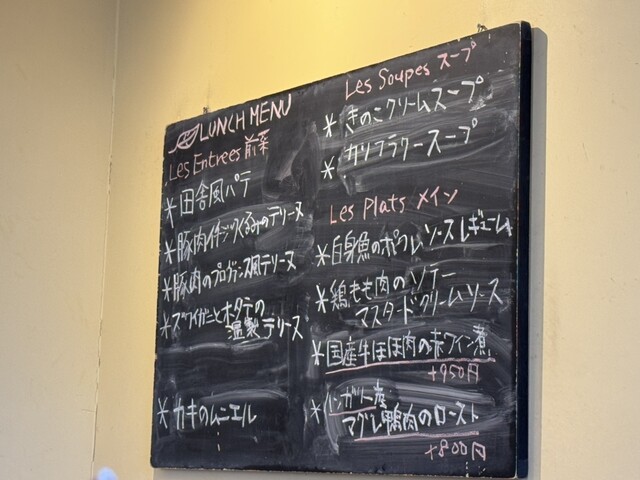 LUNCH MENU
Les Entrees 前菜
*田舎風パテ
*豚肉イチジクくるみのテリーヌ
*豚肉のプロヴァンス風テリーヌ
*ズワイガニとホタテの
温製テリーヌ
*カキのムニエル
Les Soupes スープ
*きのこクリームスープ
*カリフラワースープ
Les Plats メイン
*白身魚のポワレ ソースレギューム
*鶏もも肉のソテー
マスタードクリームソース
*国産牛ほほ肉の赤ワイン煮
+950円
*ハンガリー産
マグレ鴨肉のロースト
+800円